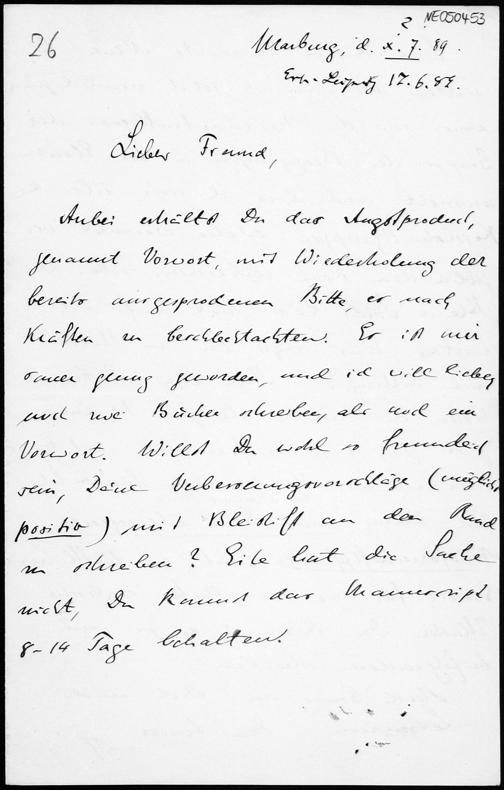 NE050453
26
2
Marburg, d. x. 7. 89.
Erh. Leipzig 17.6.87.
Lieber Freund,
Anbei erhältst Du das Angstproduct,
genannt Vorwort, mit Wiederholung der
bereits ausgesprochenen Bitte, es nach
Kräften zu beschlechtachten. Es ist mir
sauer genug geworden, und ich will lieber
noch zwei Bücher schreiben, als noch ein
Vorwort. Willst Du wohl so freundlich
sein, Deine Verbesserungsvorschläge (möglichst
positiv) mit Bleistift an den Rand
zu schreiben? Eile hat die Sache
nicht, Du kannst das Manuscript
8-14 Tage behalten.